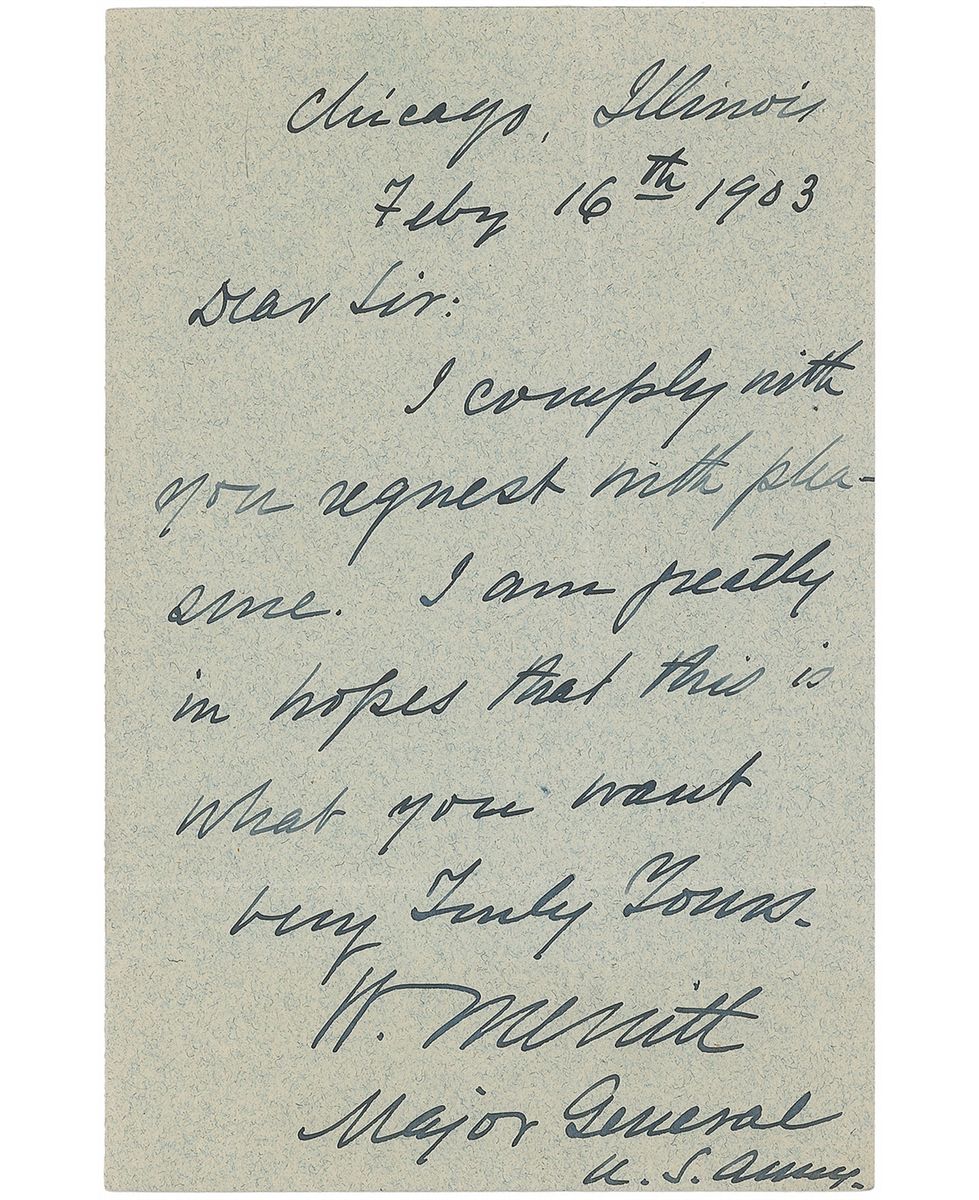 Chicago, Illinois
Feby 16th 1903
Dear Sir:
I comply with
you request with plea-
sure. I am greatly
in hopes that this is
what you want
very Truly Yours.
W. Merritt
Major General
U. S. Army.